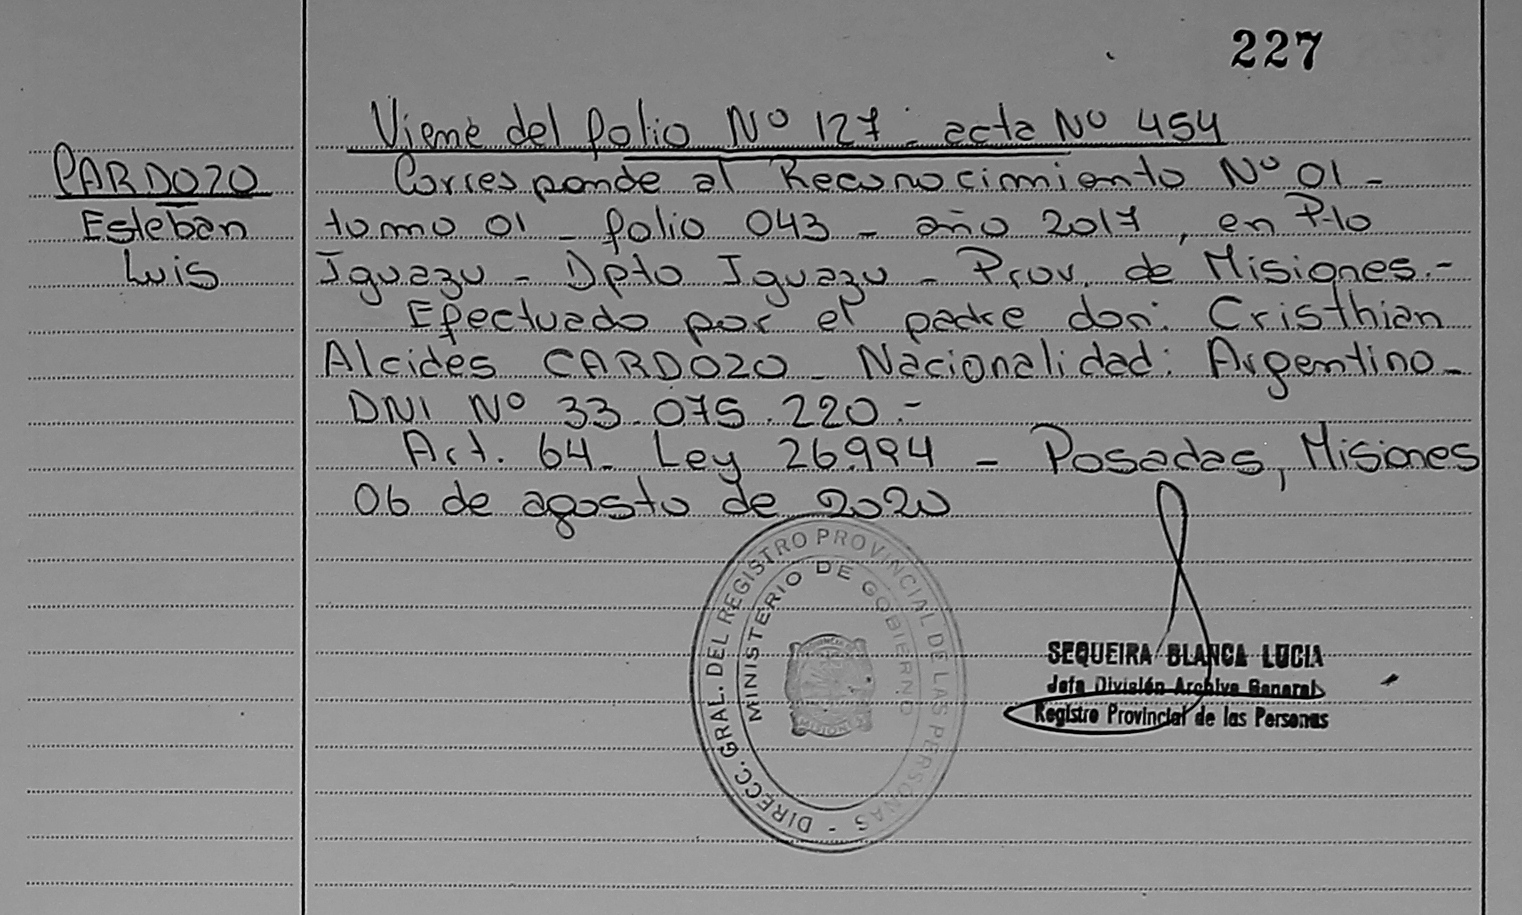 227
Viene del folio Nº 127 - acta Nº 454
CARDOZO
Esteban
Luis
Corresponde al Reconocimiento Nº 01 -
tomo 01 - folio 043 - año 2017, en Pto
Iguazu - Dpto Iguazu - Prov. de Misiones.-
Efectuado por el padre don: Cristhian
Alcides CARDOZO - Nacionalidad: Argentino -
DNI Nº 33.075.220.-
Art. 64 - Ley 26.994 - Posadas, Misiones
06 de agosto de 2020
DIRECC. GRAL. DEL REGISTRO PROVINCIAL DE LAS PERSONAS -
MINISTERIO DE GOBIERNO
MISIONES
SEQUEIRA BLANCA LUCIA
Jefa División Archivo General
Registro Provincial de las Personas